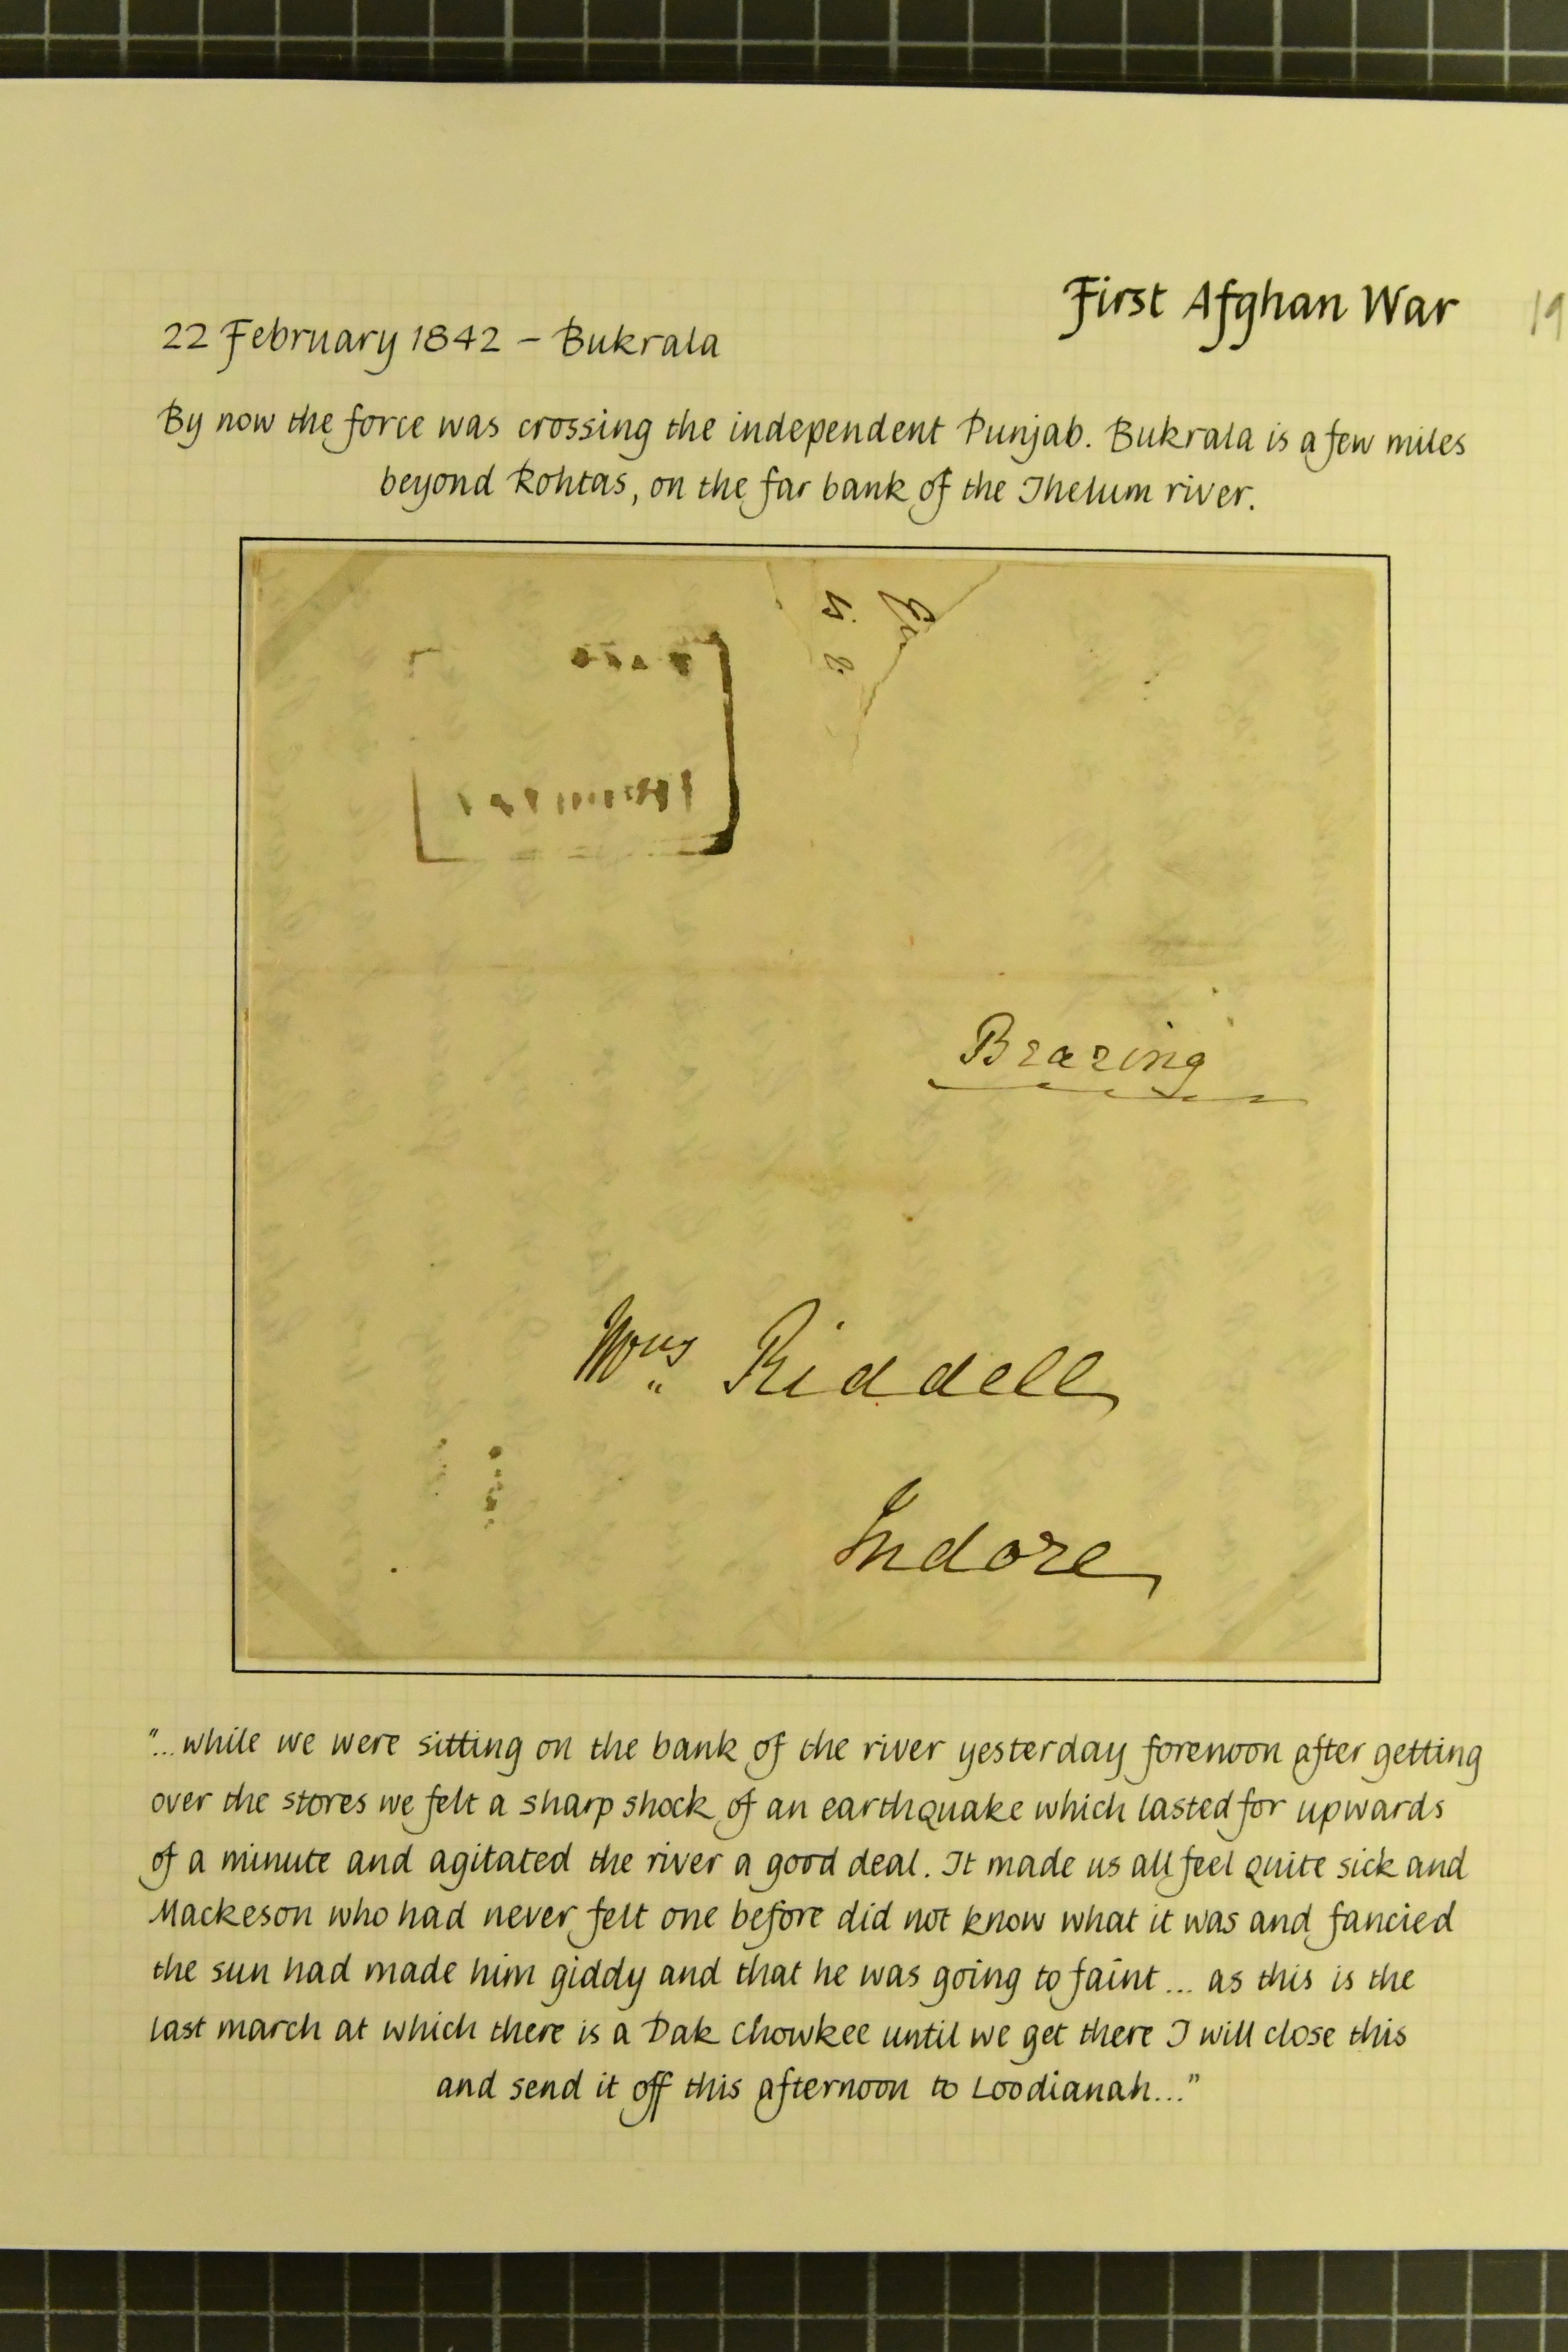 First Afghan War
19
22 February 1842 – Bukrala
By now the force was crossing the independent Punjab. Bukrala is a few miles
beyond Rohtas, on the far bank of the Jhelum river.
Bearing
Mrs Riddell
Indore
"...while we were sitting on the bank of the river yesterday forenoon after getting
over the stores we felt a sharp shock of an earthquake which lasted for upwards
of a minute and agitated the river a good deal. It made us all feel quite sick and
Mackeson who had never felt one before did not know what it was and fancied
the sun had made him giddy and that he was going to faint... as this is the
last march at which there is a Dak Chowkee until we get there I will close this
and send it off this afternoon to Loodianah..."